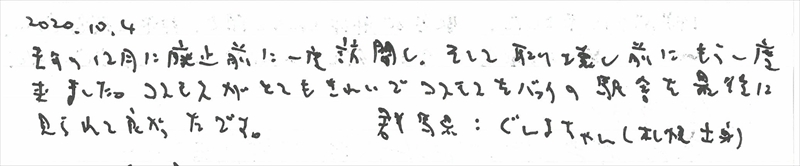 2020.10.4
去年の12月に廃止前に一度訪問し、そして取り壊し前にもう一度
来ました。コスモスがとてもきれいでコスモスをバックの駅舎を最後に
見られて良かったです。 群馬県:ぐんまちゃん(札幌出身)